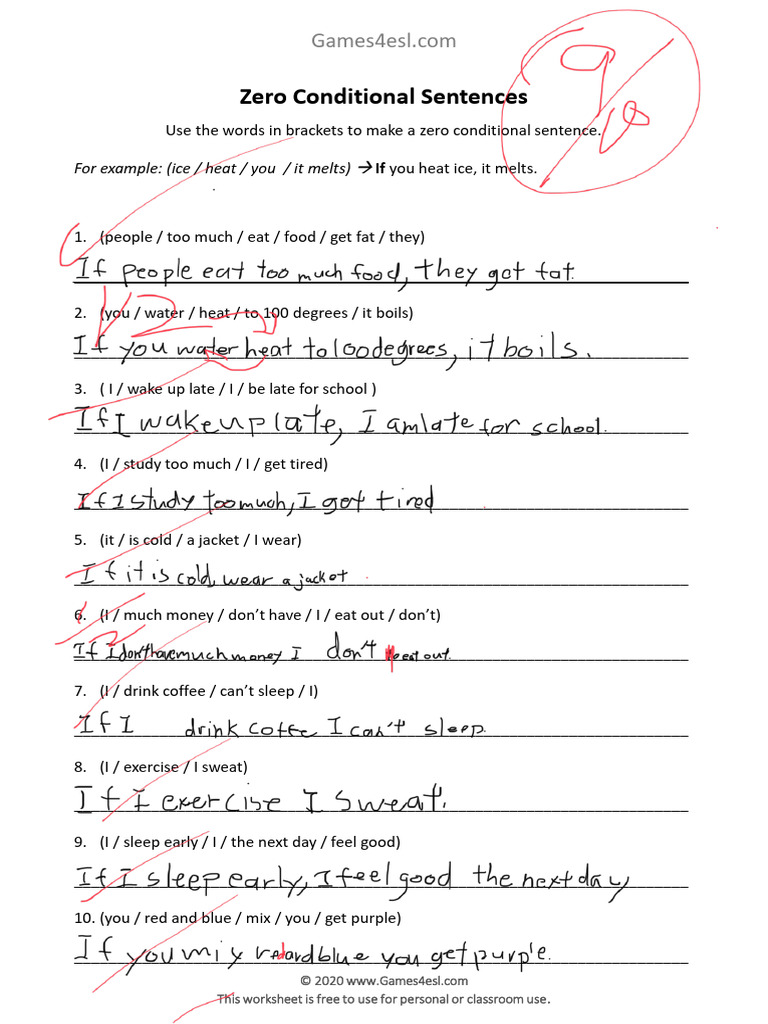 Games4esl.com
9/10
Zero Conditional Sentences
Use the words in brackets to make a zero conditional sentence.
For example: (ice / heat / you / it melts) → If you heat ice, it melts.
1. (people / too much / eat / food / get fat / they)
If people eat too much food, they get fat.
2. (you / water / heat / to 100 degrees / it boils)
1/2
If you water heat to 100 degrees, it boils.
3. ( I / wake up late / I / be late for school )
If I wake up late, I am late for school.
4. (I / study too much / I / get tired)
If I study too much, I get tired
5. (it / is cold / a jacket / I wear)
If it is cold, wear a jacket.
6. (I / much money / don't have / I / eat out / don't)
If I don't have much money I don't eat out.
7. (I / drink coffee / can't sleep / I)
If I drink coffee I can't sleep.
8. (I / exercise / I sweat)
If I exercise I sweat.
9. (I / sleep early / I / the next day / feel good)
If I sleep early, I feel good the next day
10. (you / red and blue / mix / you / get purple)
If you mix red and blue you get purple.
© 2020 www.Games4esl.com
This worksheet is free to use for personal or classroom use.